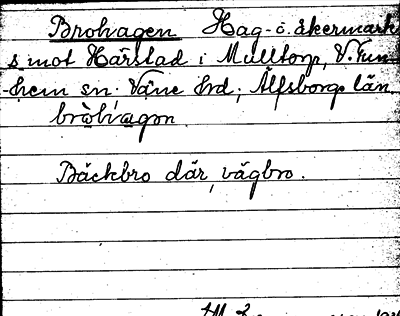 Brohagen Hag- o. åkermark
s mot Härstad i Mulltorp, V. Tun-
hem sn. Väne hrd; Älfsborgs län.
bròhágən
Bäckbro där, vägbro.